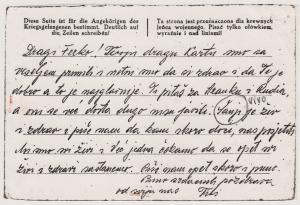 Diese Seite ist für die Angehörigen des Kriegsgefangenen bestimmt. Deutlich auf die Zeilen schreiben!
Ta strona jest przeznaczona dla krewnych jeńca wojennego. Pisać tylko ołówkiem, wyraźnie i nad linjami!
Dragi Ferko, Tvoju dragu Kartu smo sa
veseljem primili i vidimo da si zdrav i da Ti je
dobro a to je najglavnije. Ti pitaš za Slavka i Rudia,
a oni se već dosta dugo nisu javili. Sanje je živ
i zdrav i piše nam da kane skoro doći, nas posjetiti
mi smo svi živi i već jedva čekamo da se opet svi
živi i zdravi sastanemo. Piši nam opet skoro i puno.
Puno srdačnih pozdrava
od sviju nas